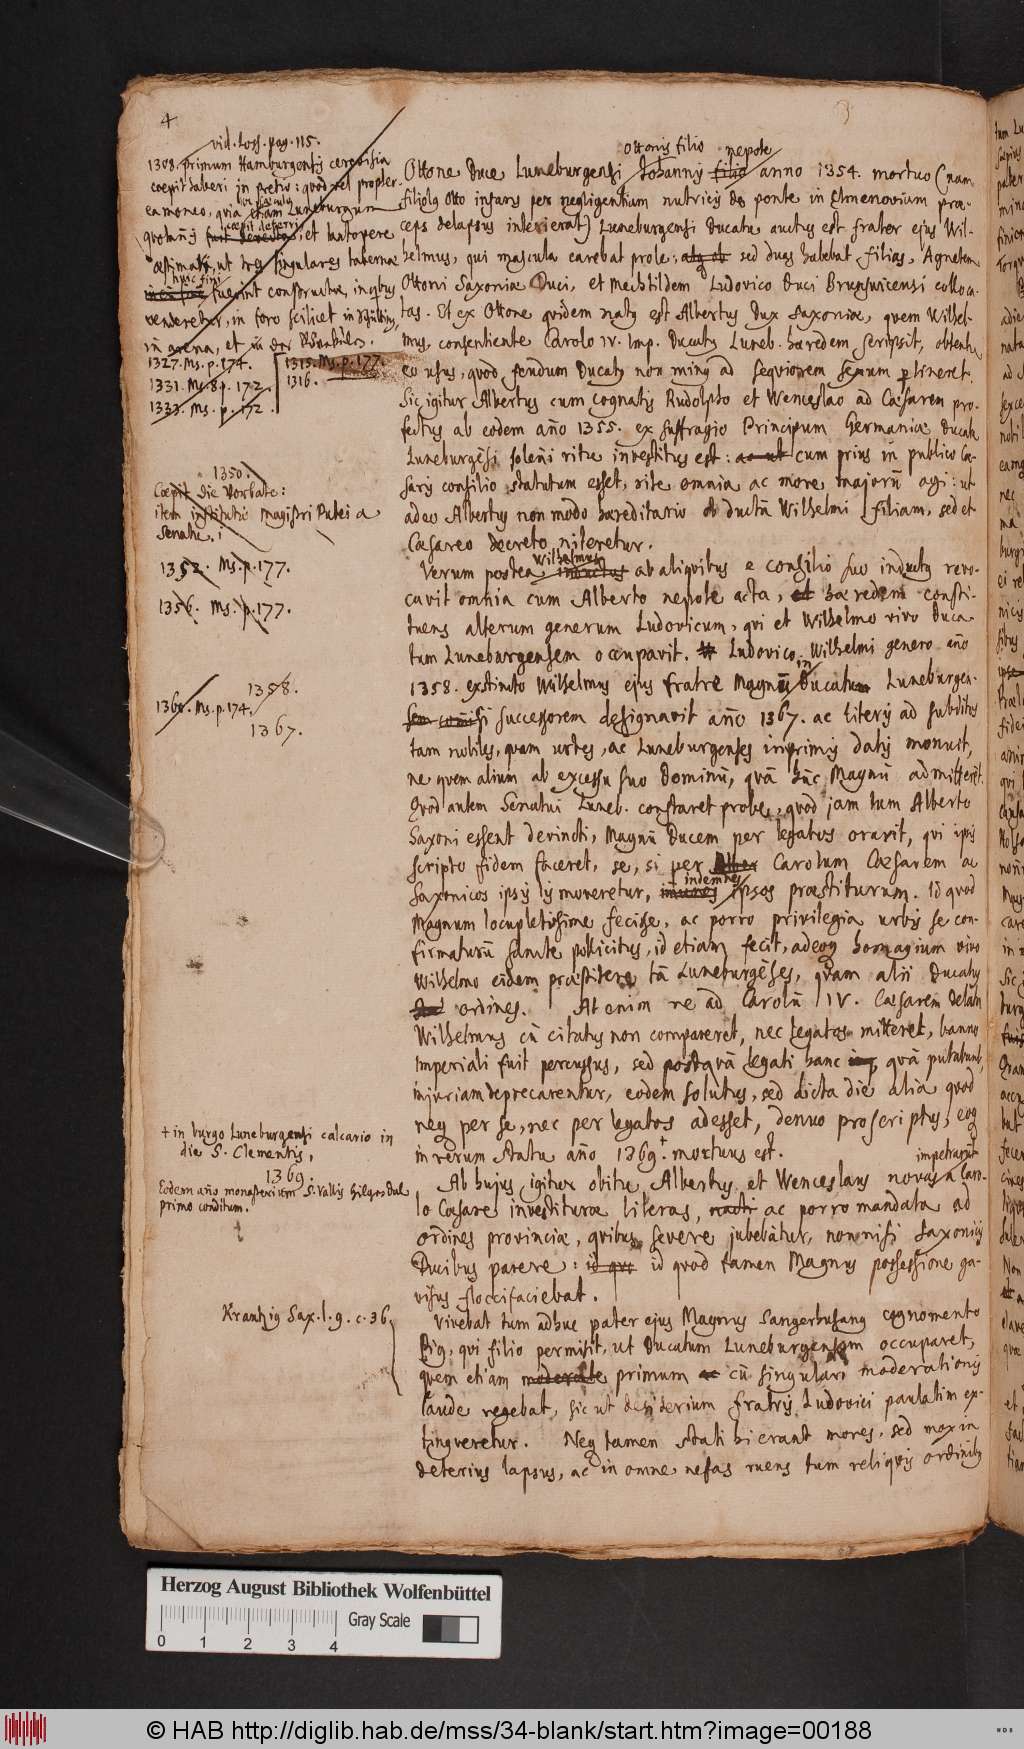 4
vid. Loss. pag. 115.
1308. primum Hamburgensis cerevisia
coepit haberi in pretio: quod vel propter-
ea moneo, quia etiam Luneburgum
coepit deferri
quotannis fuit devecta, et tantopere
aestimata, ut tres singulares tabernae
huic fini
fuerint constructae, in quibus
venderetur, in foro scilicet in Schütting,
in arena, et in der
1327. Ms. p. 174.
1331. Ms. p. 172.
1333. Ms. p. 172.
1315. Ms. p. 177.
1316.
1350.
Coepit die Vorbate:
item institutio magistri Putei a
Senatu.
1352. Ms. p. 177.
1356. Ms. p. 177.
1358.
1360. Ms. p. 174.
1367.
+ in burgo Luneburgensi calcario in
die S. Clementis,
1369.
Eodem año monasterium S. Vallis Hilgendal
primo conditum.
Krantzig Sax. l. 9. c. 36
Ottonis filio nepote
Ottone Duce Luneburgensi Johannis filio anno 1354. mortuo (nam
filiolus Otto infans per negligentium nutricis de ponte in Elmenovium prae-
ceps delapsus interierat) Luneburgensi Ducatu auctus est frater ejus Wil-
helmus, qui mascula carebat prole: atq ob sed duas habebat filias, Agnetem
Ottoni Saxoniae Duci, et Mechtildem Ludovico Duci Brunsvicensi colloca-
tas. Et ex Ottone quidem natus est Albertus Dux Saxoniae, quem Wilhel-
mus, consentiente Carolo IV. Imp. Ducatus Luneb. haeredem scripsit, obtentu
eo usus, quod feudum Ducatus non minus ad sequiorem sexum pertineret.
Sic igitur Albertus cum cognatis Rudolpho et Wenceslao ad Caesarem pro-
fectus ab eodem año 1355. ex suffragio Principum Germaniae Ducatu
Luneburgēsi solen̄i ritu investitus est: ac ut cum prius in publico Cae-
saris consilio statutum esset, rite omnia ac more majorū agi: ut
adeo Albertus non modo haereditario ob ductā Wilhelmi filiam, sed et
Caesareo decreto niteretur.
Wilhelmus
Verum postea inductus ab aliquibus e consilio suo inductus revo-
cavit omnia cum Alberto nepote acta, et haeredem consti-
tuens alterum generum Ludovicum, qui et Wilhelmo vivo Duca
tum Luneburgensem occupavit. Ludovico Wilhelmi genero año
in
1358. exstincto Wilhelmus ejus fratrē Magnū Ducatum Luneburgen-
sem successorem designavit año 1367. ac literis ad subditos
tam nobiles, quam urbes, ac Luneburgenses inprimis datis monuit,
ne quem alium ab excessu suo Dominū, quā hūc Magnū admitterēt.
Quod autem Senatui Luneb. constaret probe, quod jam tum Alberto
Saxoni essent devincti, Magnū Ducem per legatos orarit, qui ipsis
scripto fidem faceret, se, si per Carolum Caesarem ac
indemnes
Saxonicos ipsis is moveretur, imunes ipsos praestiturum. Id quod
Magnum locupletissime fecisse, ac porro privilegia urbis se con-
firmaturū sancte pollicitus, id etiam fecit, adeoq homagium vivo
Wilhelmo eidem praestitere tā Luneburgēses, quam alii Ducatus
ordines. At enim re ad Carolū IV. Caesarem delata
Wilhelmus cū citatus non compareret, nec legatos mitteret, banno
Imperiali fuit percussus, sed postquā legati hanc quā putabant,
injuriam deprecarentur, eodem solutus, sed dicta die alia quod
neq per se, nec per legatos adesset, denuo proscriptus, eoq
in rerum statu año 1369.+ mortuus est.
impetratis
Ab hujus igitur obitu Albertus et Wenceslaus novas a Caro-
lo Caesare investiturae literas, nacti ac porro mandata ad
ordines provinciae, quibus severe jubebātur, non nisi Saxonicis
Ducibus parere: id quo id quod tamen Magnus possessione ga-
visus floccifaciebat.
Vivebat tum adhuc pater ejus Magnus Sangerhusanus cognomento
Pius, qui filio permisit, ut Ducatum Luneburgensem occuparet,
quem etiam moderate primum ac cū singulari moderationis
laude regebat, sic ut desiderium fratris Ludovici paulatim ex-
tingveretur. Neq tamen stati hi erant mores, sed mox in
deterius lapsus, ac in omne nefas ruens tum reliquis ordinibus
Herzog August Bibliothek Wolfenbüttel
0 1 2 3 4
Gray Scale
© HAB http://diglib.hab.de/mss/34-blank/start.htm?image=00188